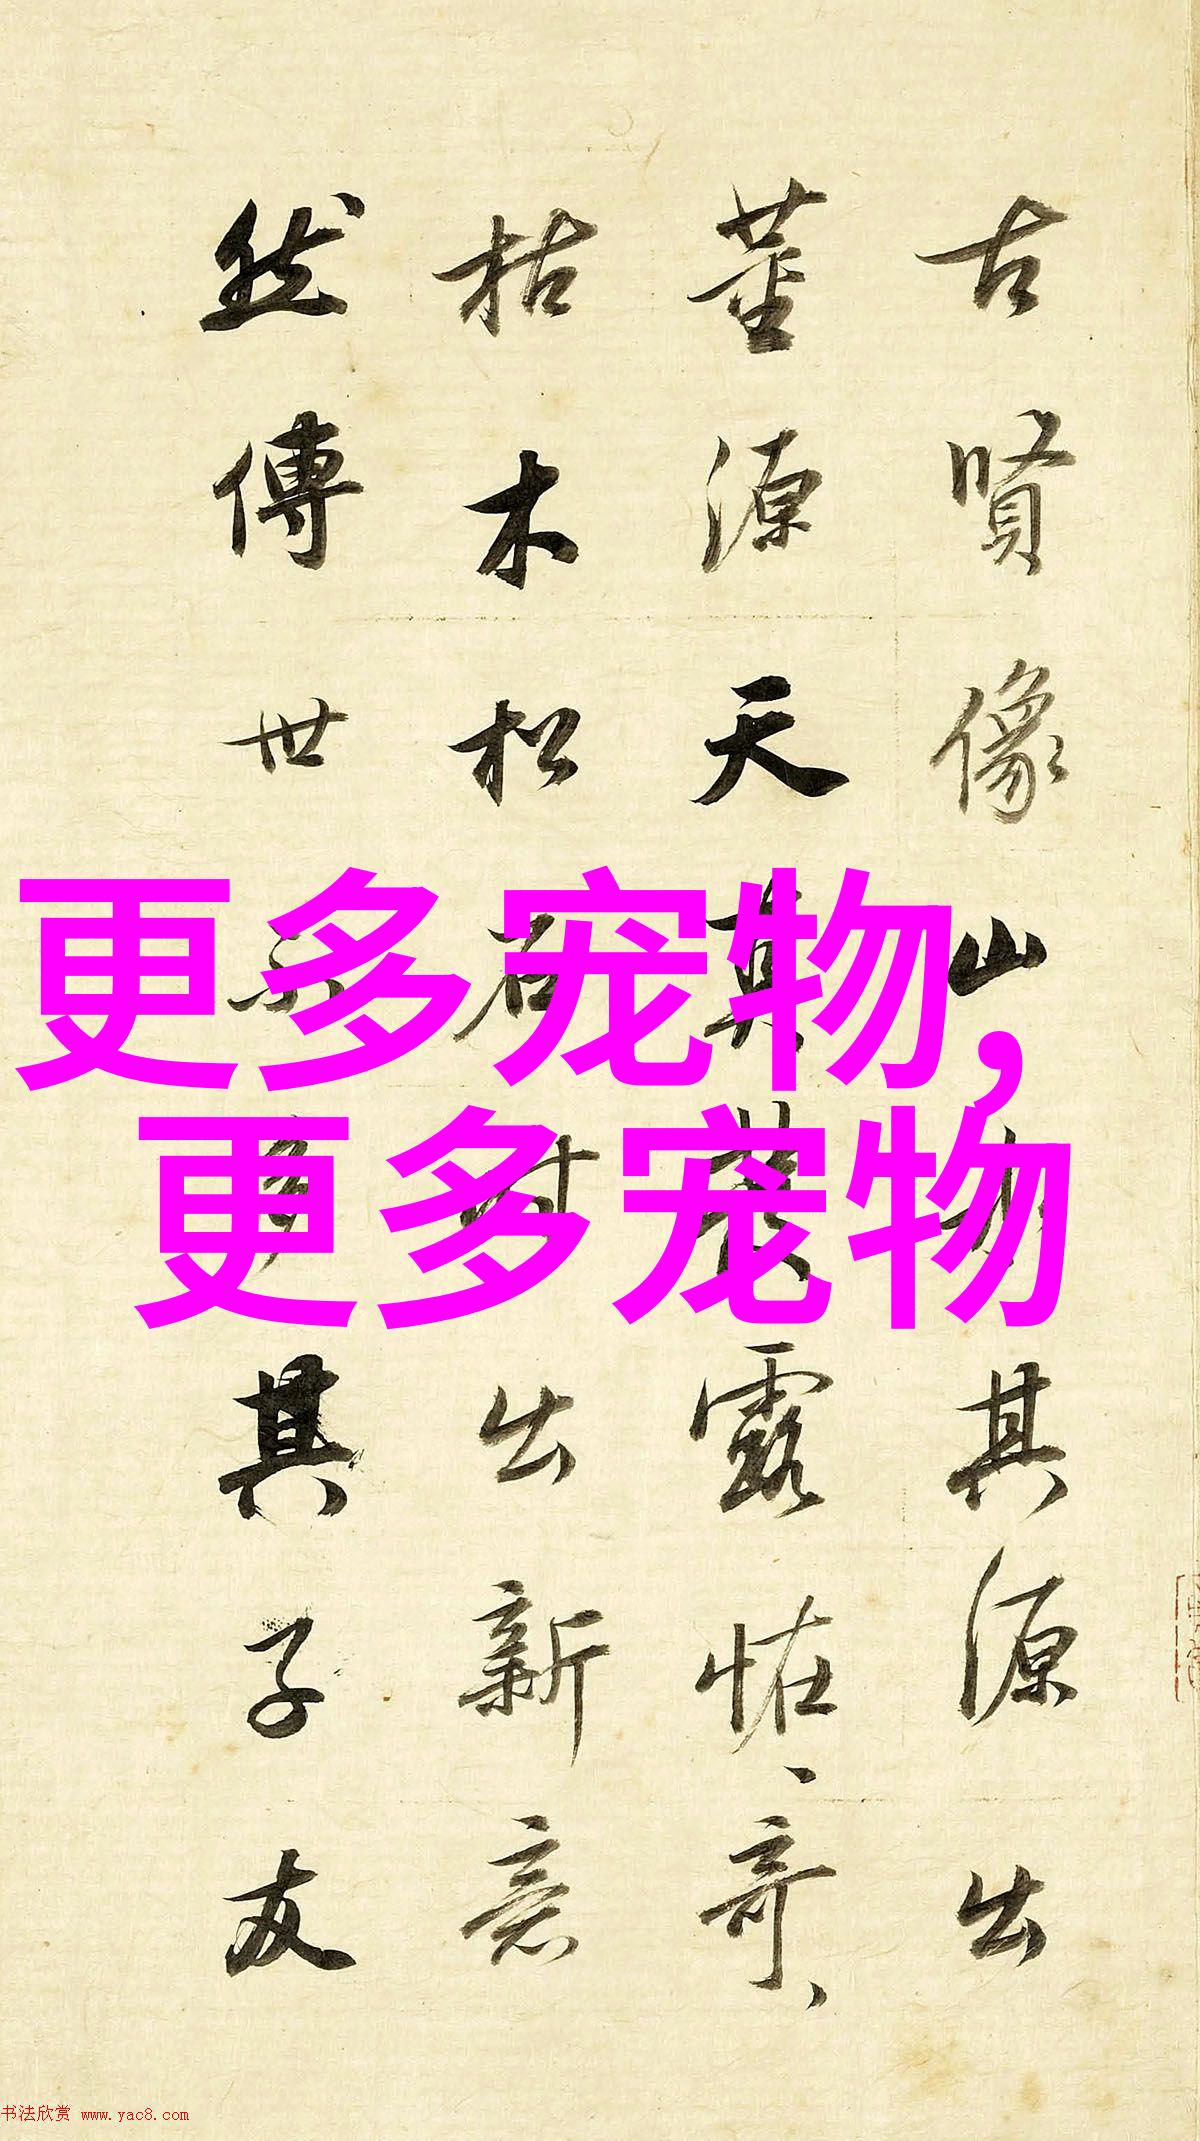 古賢像山水其源出
董源天真叢露恠、奇、
枯木松石時出新意
然傳世不多其子友
更多宠物,
更多宠物
书法欣赏 www.yac8.com